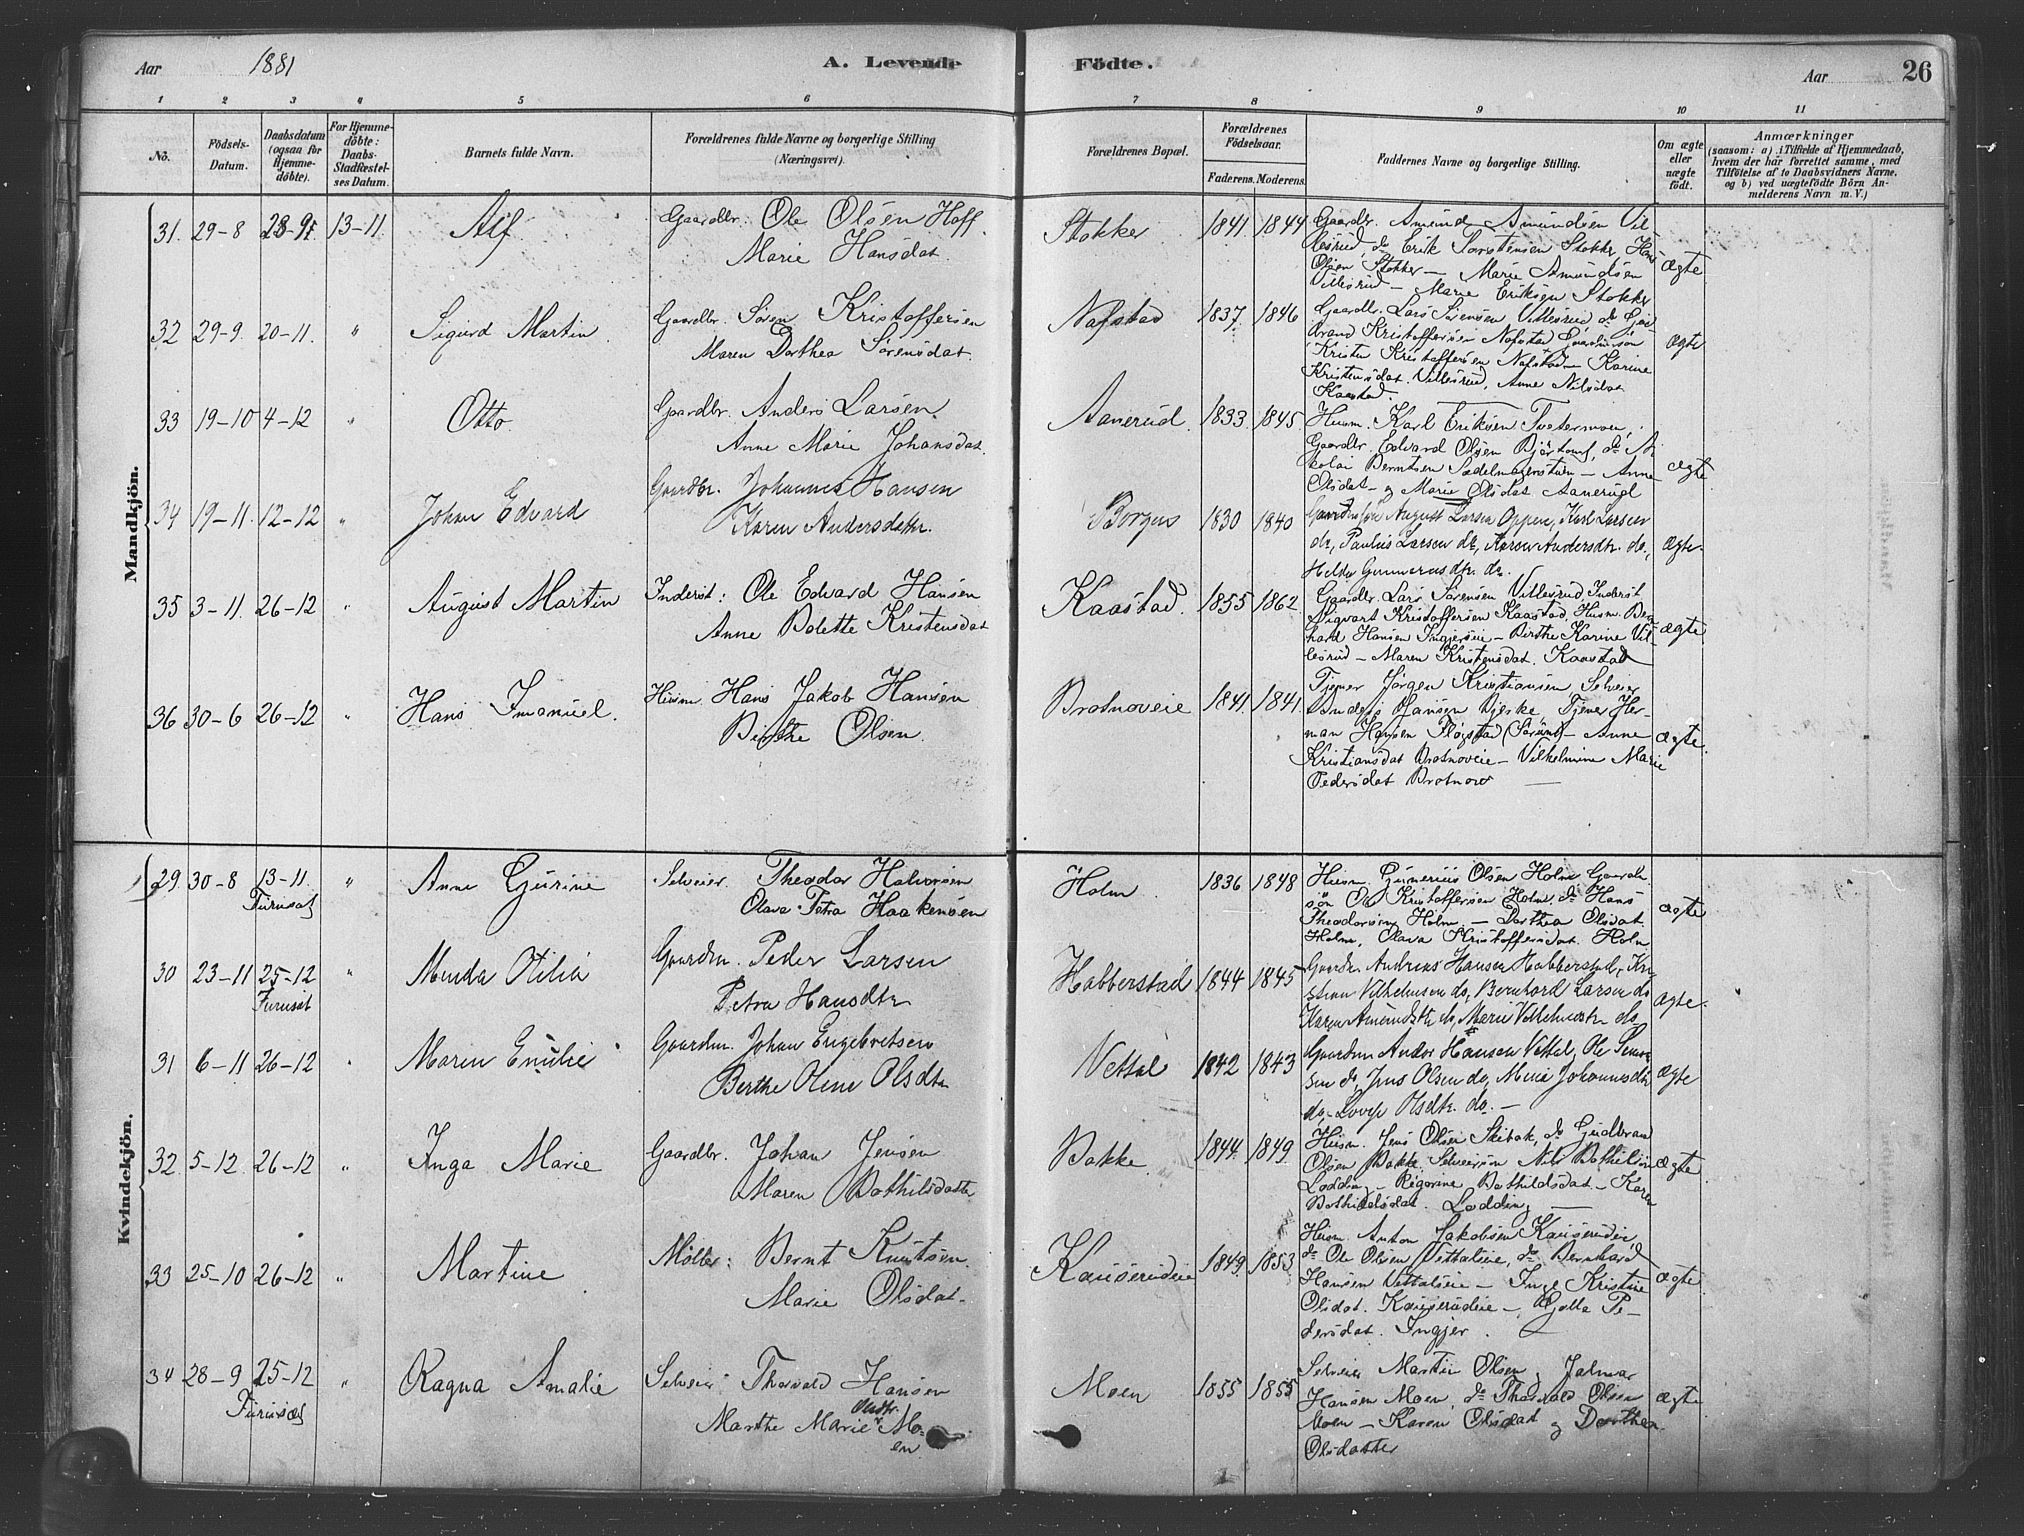 Aar 1881 A. Levende Födte. Aar 26
1 2 3 4 5 6 7 8 9 10 11
No.
Födsels-Datum.
Daabsdatum (ogsaa for Hjemme-döbte).
For Hjemme-döbte: Daabs-Stadfæstel-ses Datum.
Barnets fulde Navn.
Forældrenes fulde Navne og borgerlige Stilling (Næringsvei).
Forældrenes Bopæl.
Forældrenes Födselsaar.
Faderens. Moderens.
Faddernes Navne og borgerlige Stilling.
Om ægte eller uægte födt.
Anmærkninger
(saasom: a) i Tilfælde af Hjemmedaab,
hvem der har forrettet samme, med
Tilföielse af to Daabsvidners Navne.
og b) ved uægtefödte Börn An-
melderens Navn m. V.)
Mandkjön.
31. 29-8 13-11 Alf Gaardbr. Ole Olsen Hoff Stokker 1841 1844 Gaardbr. Amund Amundsen Vil-
Marie Hansdat. lesrud, do Erik Torstensen Stokke, Hans
Olsen Stokker – Marie Amundsen ægte
Villesrud – Marie Eriksen Stokke
32 29-9. 20-11. " Sigurd Martin Gaardbr. Søren Kristoffersen Nafstad 1837 1846 Gaardbr. Lars Sørensen Villesrud, do Gud-
Maren Dorthea Sørensdat. brand Kristoffersen Nafstad ægte
Kristen Kristoffersen Nafstad – Karine
Kristensdat. Villesrud, Anne Nilsdat
Kaastad.
33 19-10 4-12 " Otto. Gaardbr. Anders Larsen Aanerud. 1833 1845 Husm. Karl Eriksen
Anne Marie Johansdat. Gaardbr. Edvard Olsen do Ni-
kolai Berntsen – Anne ægte
Olsdat – og Marie Olsdat Aanerud
34 19-11 12-12 " Johan Edvard Gaardbr. Johannes Hansen Borgen 1830 1840 August Larsen Oppen, Karl Larsen
Karen Andersdatter. do, Paulus Larsen do, Karen Andersdtr. do, ægte.
Gunnerusdtr. do.
35 3-11 26-12 " August Martin Inderst: Ole Edvard Hansen Kaastad. 1855 1862. Gaardbr. Lars Sørensen Villesrud Inderst
Anne Bolette Kristensdat Sigvart Kristoffersen Kaastad, Husm. Ber-
hard Hansen Ingjerseie – Birthe Karine Vil- ægte
lesrud – Maren Kristensdat. Kaastad
36 30-6 26-12 " Hans Imanuel. Husm. Hans Jakob Hansen Brotnoveie 1841. 1841. Tjener Jørgen Kristiansen, Selveier
Birthe Olsen. Anders Hansen Bjerke, Tjener Her-
man Hansen – Anne ægte.
Kristiansdat Brotnoveie – Vilhelmine Marie
Pedersdat Brotnove
Kvindekjön.
29. 30-8 13-11. " Anne Gjurine Selveier. Theodor Halvorsen Holm 1836 1848 Husm. Gunerius Olsen Holm Gaardbr.
Furusat Olava Petra Haakensen søn Ole Kristoffersen Holm, do Hans ægte
Theodorsen Holm, – Dorthea Olsdat.
Holm, Olava Kristoffersdat. Holm
30 23-11 25-12 " Minda Otilia Gaardm. Peder Larsen Habberstad 1844 1845 Gaardm. Andreas Hansen Habberstad, Kri-
Furusat Petra Hansdtr stian Vilhelmsen do, Bernhard Larsen do ægte.
Karen do, Marie Vilhelmsdtr do
31 6-11 26-12 " Maren Emilie Gaardm. Johan Engebretsen Vettal 1842 1843 Gaardm Andor Hansen Vettal, Ole
Berthe Oline Olsdtr do, Jens Olsen do, Mina Johannesdtr ægte
do – Olsdtr. do. –
32. 5-12. 26-12 " Inga Marie Gaardbr. Johan Jensen Bakke. 1844. 1849. Husm. Jens Olsen Skibak, do Gudbrand
Maren Bothilsdatter Olsen Bakke. Selveiersøn Nils Bothilsen ægte
Lodding – Regorine Bothildsdat – Karen
Bothildsdat. Lodding –
33 25-10 26-12 " Martine Møller: Bernt Knutsen. Kauserudeie 1849. 1853. Husm. Anton Jakobsen Kauserudeie,
Marie Olsdat. do Ole Olsen Vettaleie, do Bernhard
Hansen Vettaleie – Inge Kristine ægte
Olsdat. Kauserudeie – Pe-
dersdat. Ingjer.
34 28-9 25-12 " Ragna Amalie Selveier Thorvald Hansen Moen 1855 1855 Selveier Martin Olsen, Jalmar
Furusæt Marthe Marie Olsdtr. Moen Hansen Moen, do Thorvald Olsen ægte
Moen – Karen Olsdat og Dorthea
Olsdatter